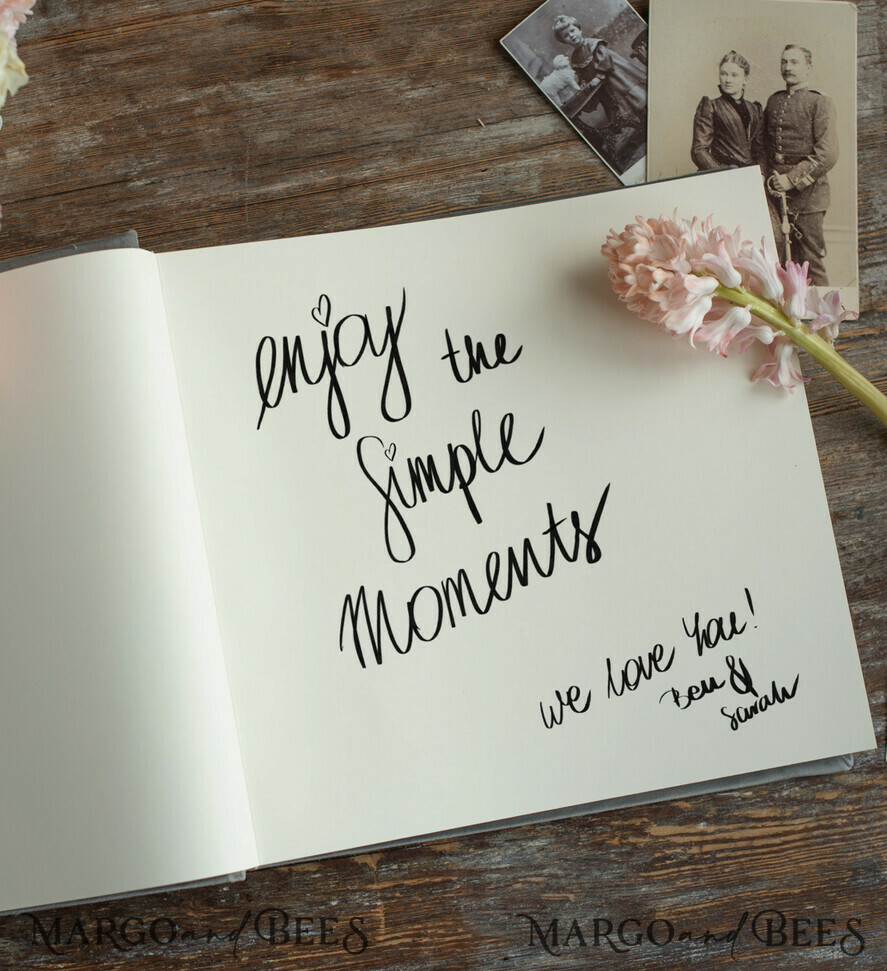 enjoy the
simple
Moments
we love you!
Ben &
Sarah
MARGO and BEES MARGO and BEES